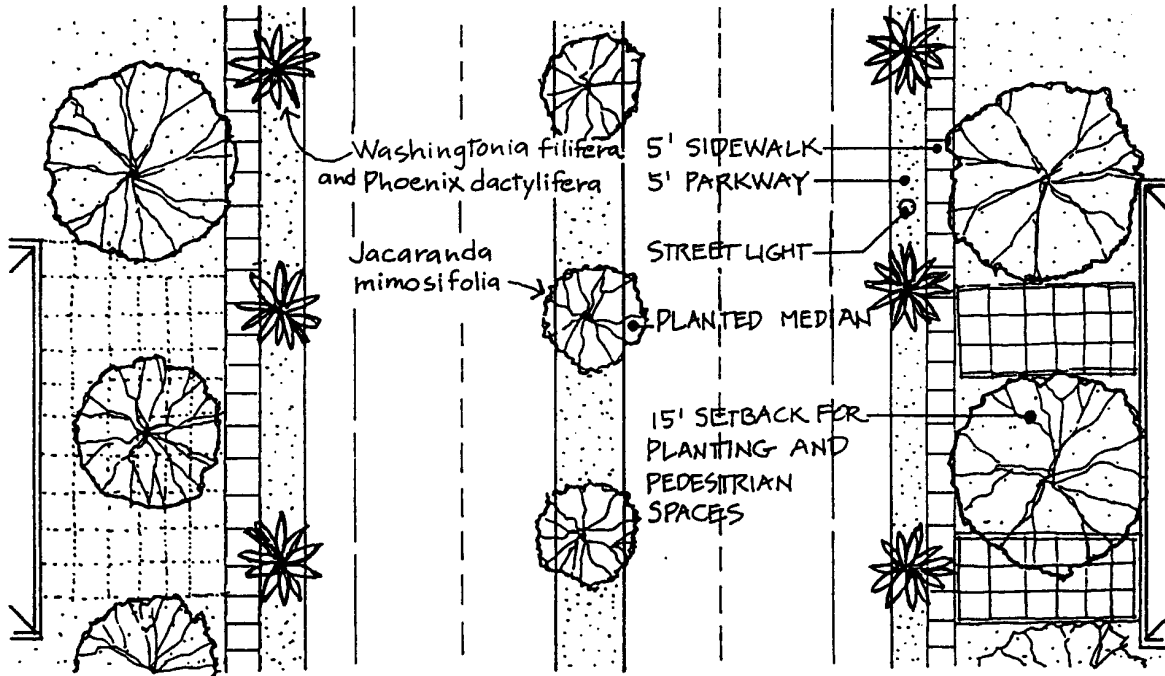 Washingtonia filifera
and Phoenix dactylifera
Jacaranda
mimosifolia
5' SIDEWALK
5' PARKWAY
STREET LIGHT
PLANTED MEDIAN
15' SETBACK FOR
PLANTING AND
PEDESTRIAN
SPACES